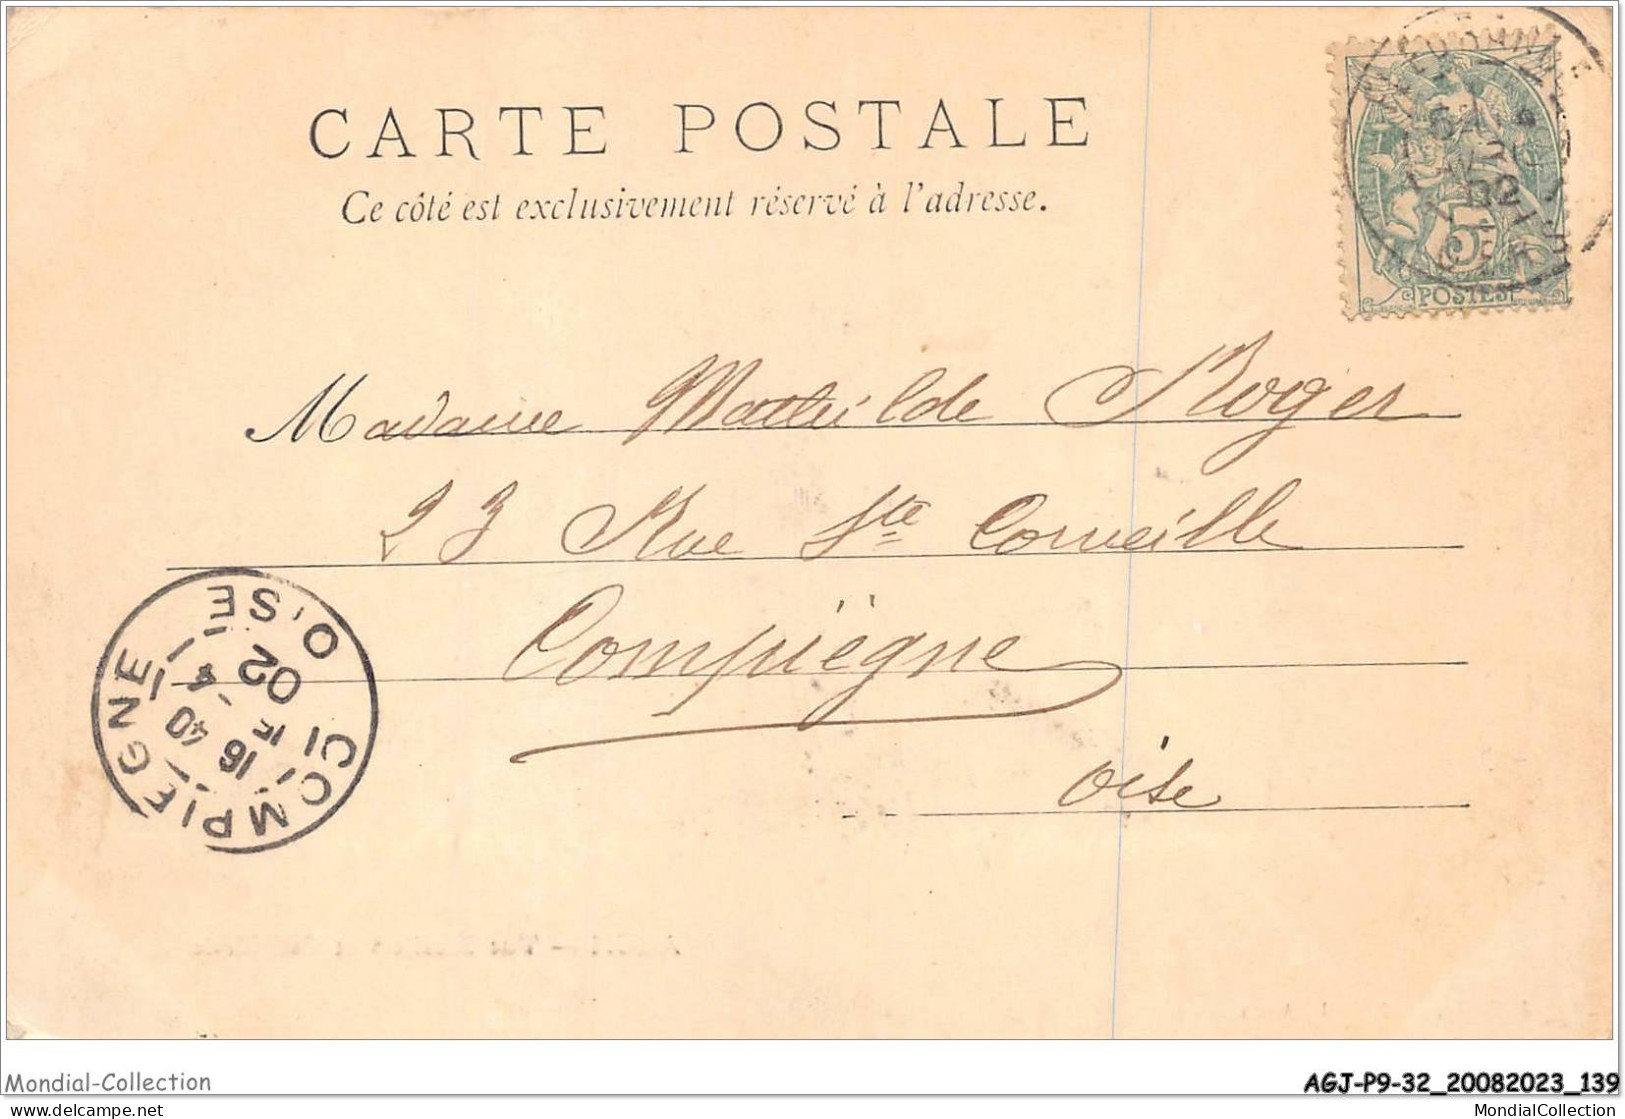 CARTE POSTALE
Ce côté est exclusivement réservé à l'adresse.
5
POSTES
02
Madame Mathilde Roger
23 Rue Ste Corneille
Compiègne
Oise
COMPIEGNE OISE
16 40
4
02
Mondial-Collection
AGJ-P9-32_20082023_139
delcampe.net
MondialCollection